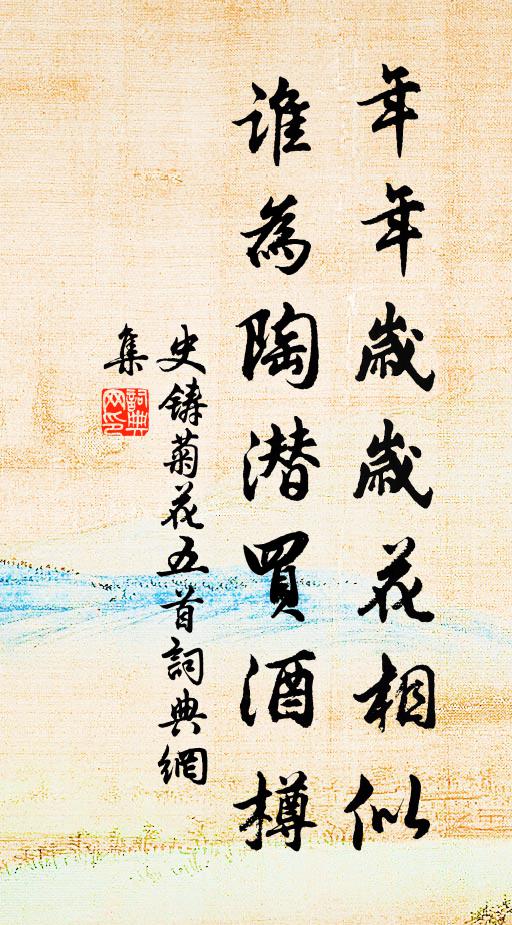 年年歲歲花相似
誰為陶潛買酒樽
史鑄菊花五首詞典網
集
詞典
网印